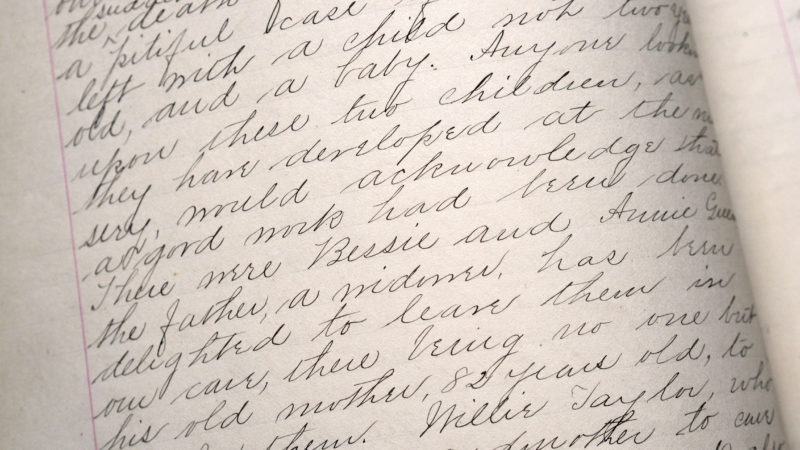 the death
a pitiful case
left with a child not two
old, and a baby. Anyone
upon these two children, as
they have developed at the
sery, would acknowledge that
a good work had been done.
There were Bessie and Annie
the father, a widower, has been
delighted to leave them in
our care, there being no one but
his old mother, 82 years old, to
them. Willie Taylor, who
to care